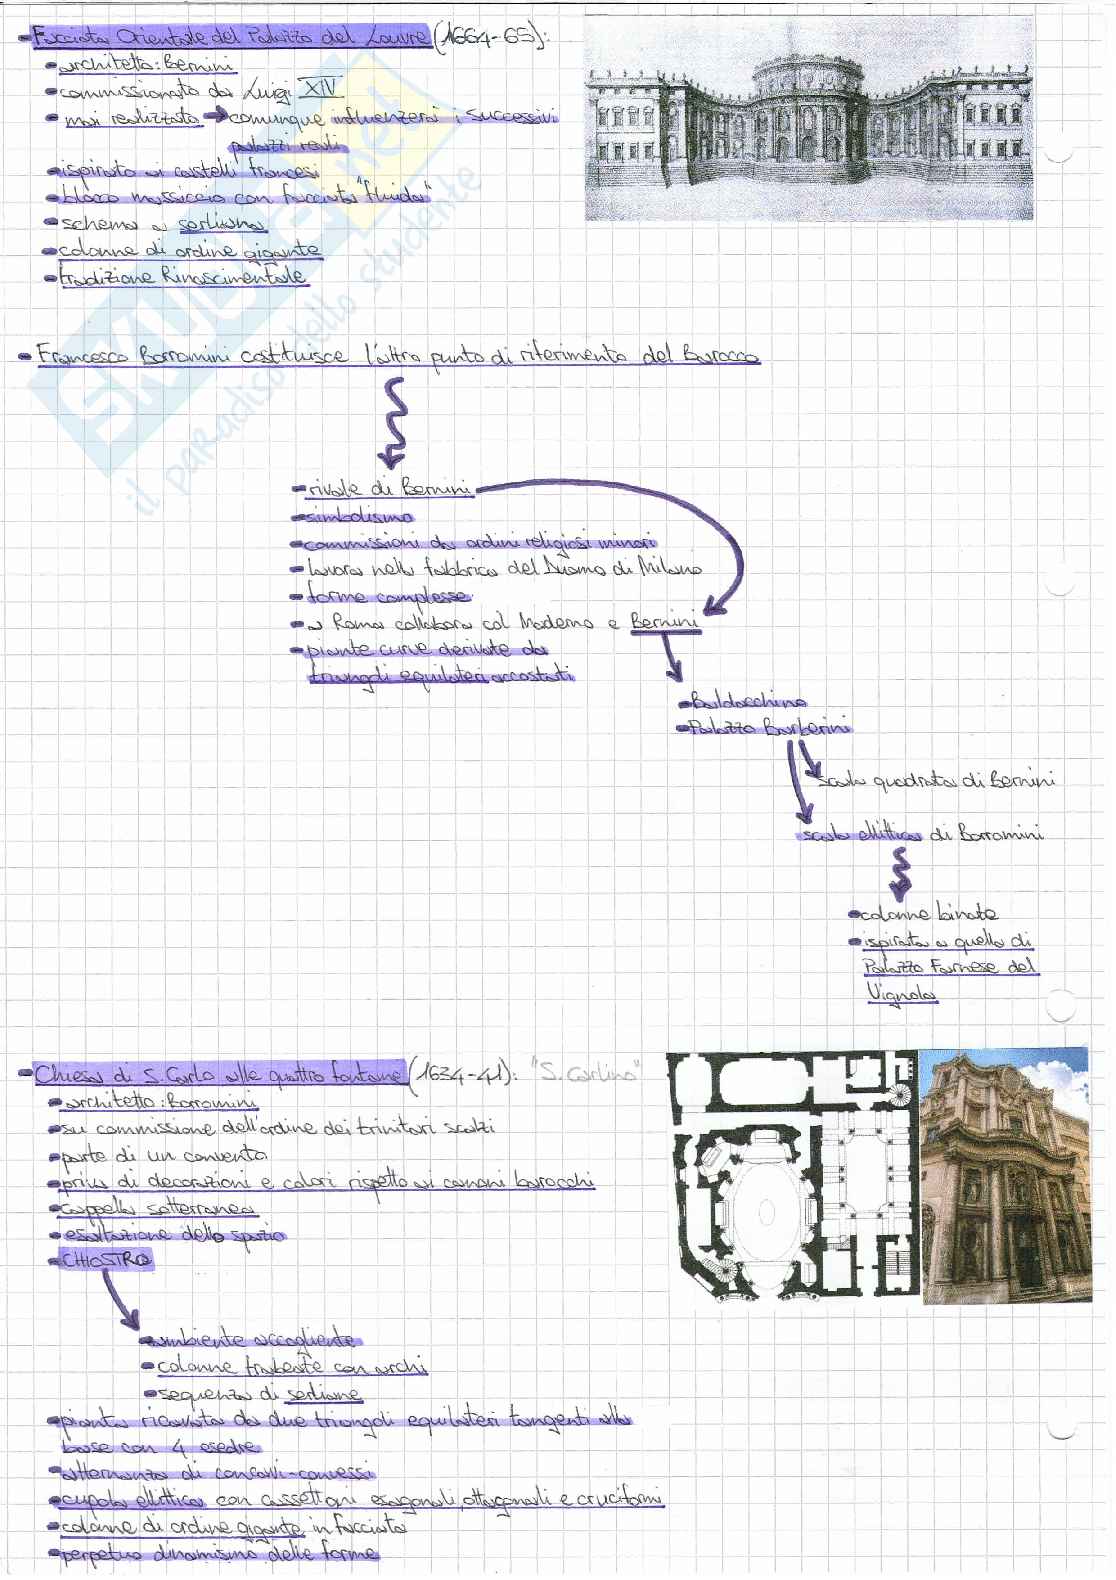 Facciata Orientale del Palazzo del Louvre (1664-65):
architetto: Bernini
commissionata da Luigi XIV
mai realizzata → comunque influenzerà i successivi
palazzi reali
ispirata ai castelli francesi
blocco massiccio con facciata "fluida"
schema a serliana
colonne di ordine gigante
tradizione Rinascimentale
Francesco Borromini costituisce l'altro punto di riferimento del Barocco
rivale di Bernini
simbolismo
commissioni da ordini religiosi minori
lavora nella fabbrica del Duomo di Milano
forme complesse
a Roma collabora col Maderno e Bernini
piante curve derivate da
triangoli equilateri accostati
Baldacchino
Palazzo Barberini
scala quadrata di Bernini
scala ellittica di Borromini
colonne binate
ispirata a quella di
Palazzo Farnese del
Vignola
Chiesa di S. Carlo alle quattro fontane (1634-41): "S. Carlino"
architetto: Borromini
su commissione dell'ordine dei trinitari scalzi
parte di un convento
priva di decorazioni e colori rispetto ai canoni barocchi
cappella sotterranea
esaltazione dello spazio
CHIOSTRO
ambiente accogliente
colonne trabeate con archi
sequenza di serliane
pianta ricavata da due triangoli equilateri tangenti alla
base con 4 esedre
alternanza di concavi-convessi
cupola ellittica con cassettoni esagonali, ottagonali e cruciformi
colonne di ordine gigante in facciata
perpetuo dinamismo delle forme
SKUOLA.net
il paradiso dello studente